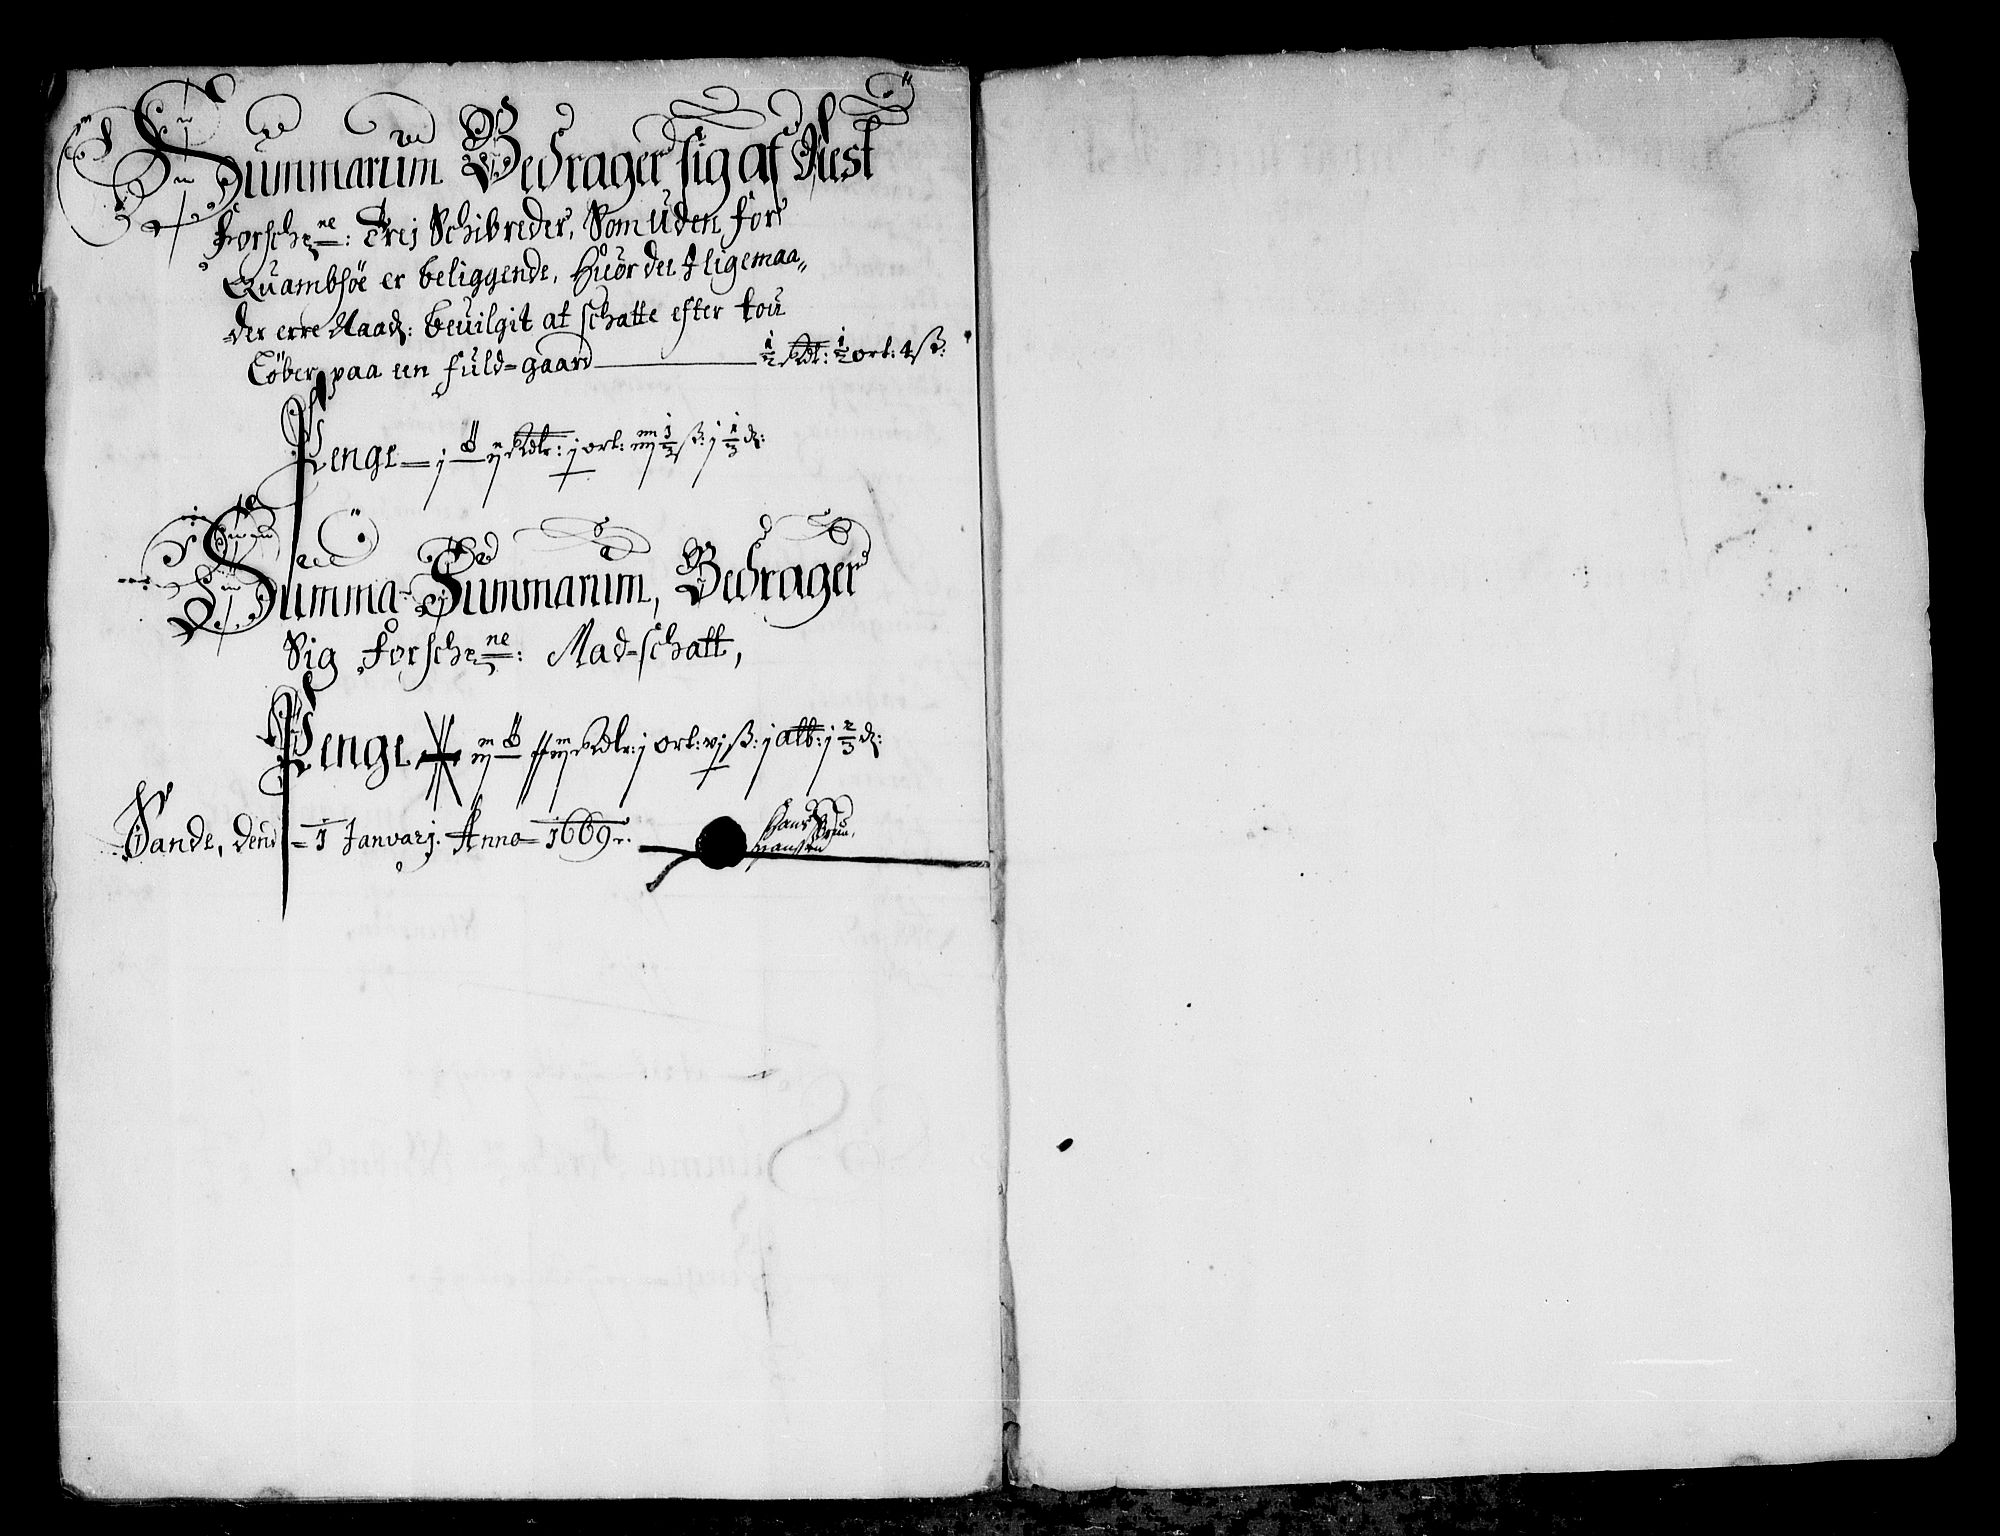 Summarum Bedrager sig af Næst
Forschr:ne: Trej Schibreder, Som uden for
Quambsöe er beliggende, Huor det I ligemaa„
der erre Naad: beuilgit at schatte efter tou
Löber paa een fuld-gaard — ½ Rdr: ½ ort: 4 ß:
Penge — j Rdlr: j ort: ß: j ⅓ d:
Summa Summarum, Bedrager
Sig Forschr:ne: Mad-schatt,
Penge Rdlr: j ort: vj ß: j alb: j ⅔ d:
Sande, denn 1 Januarj. Anno 1669.
Hans
Hanssen